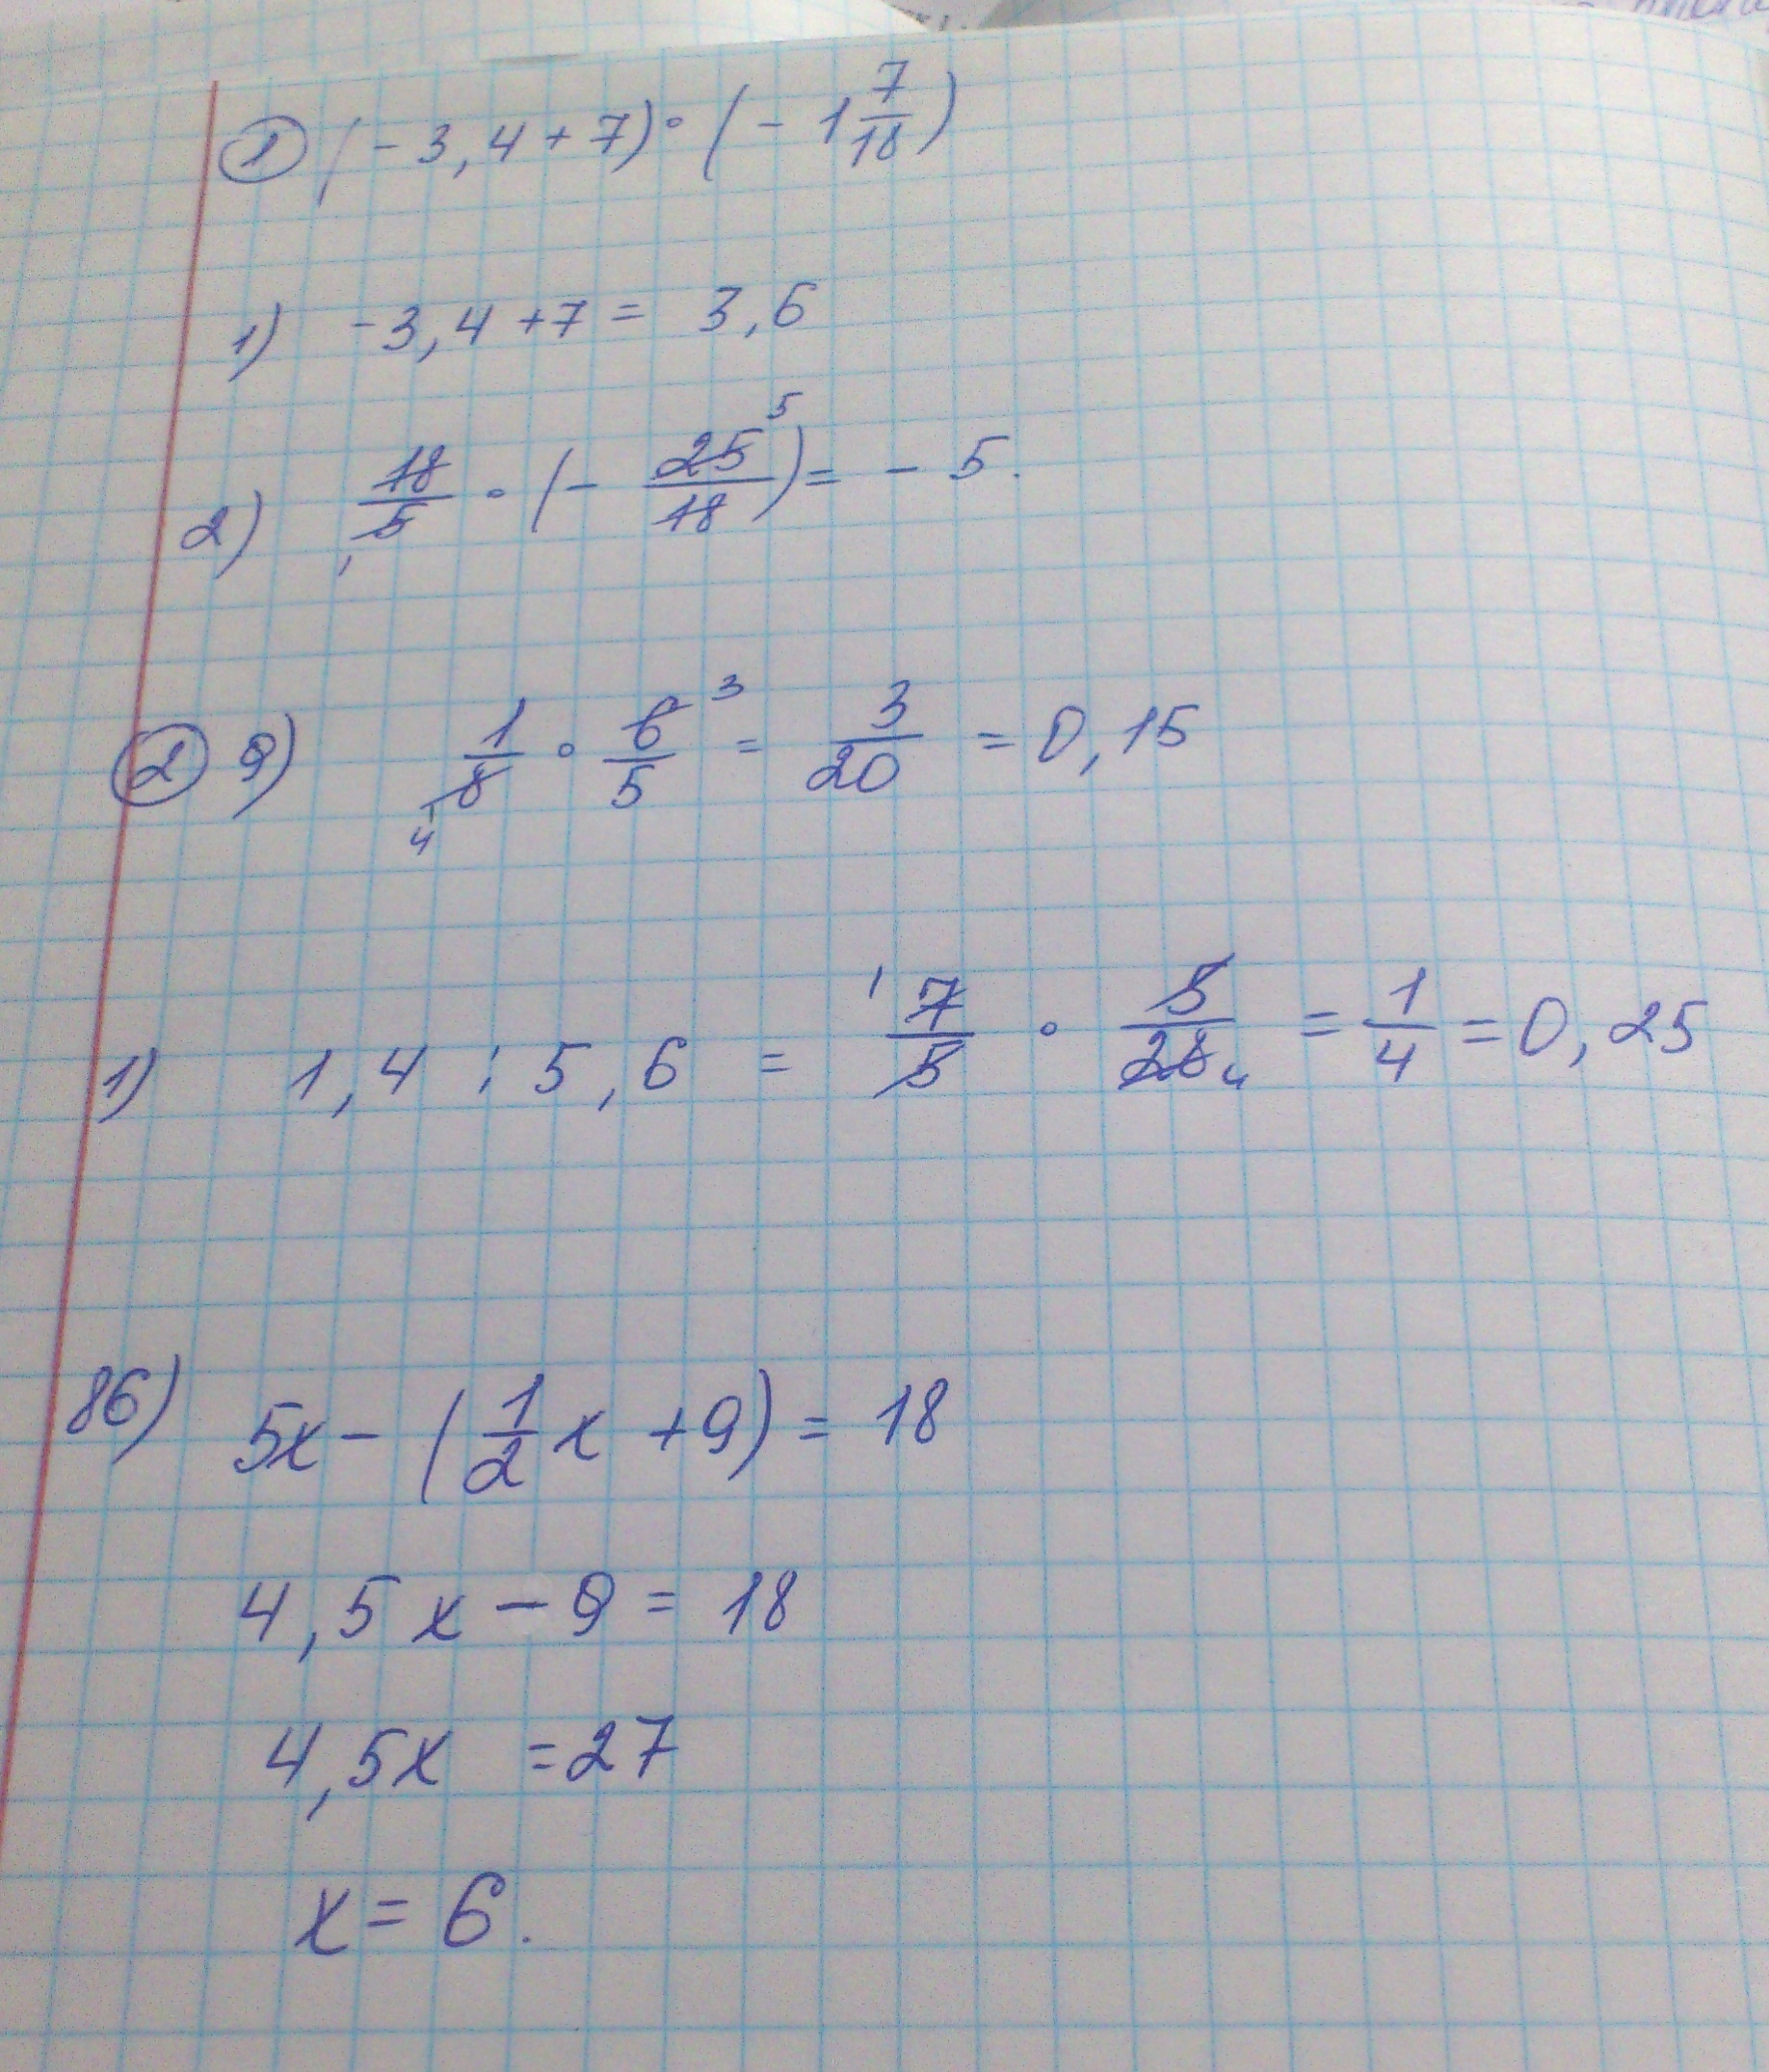 ① (-3,4+7)·(-1 7/18)
1) -3,4+7= 3,6
2) 18/5 · (- 25/18 5) = - 5.
② 9) 1/8 4 · 6/5 3 = 3/20 = 0,15
1) 1,4 : 5,6 = 1 7/5 · 5/28 4 = 1/4 = 0,25
86) 5x- (1/2 x +9) = 18
4,5x - 9 = 18
4,5x =27
x= 6.